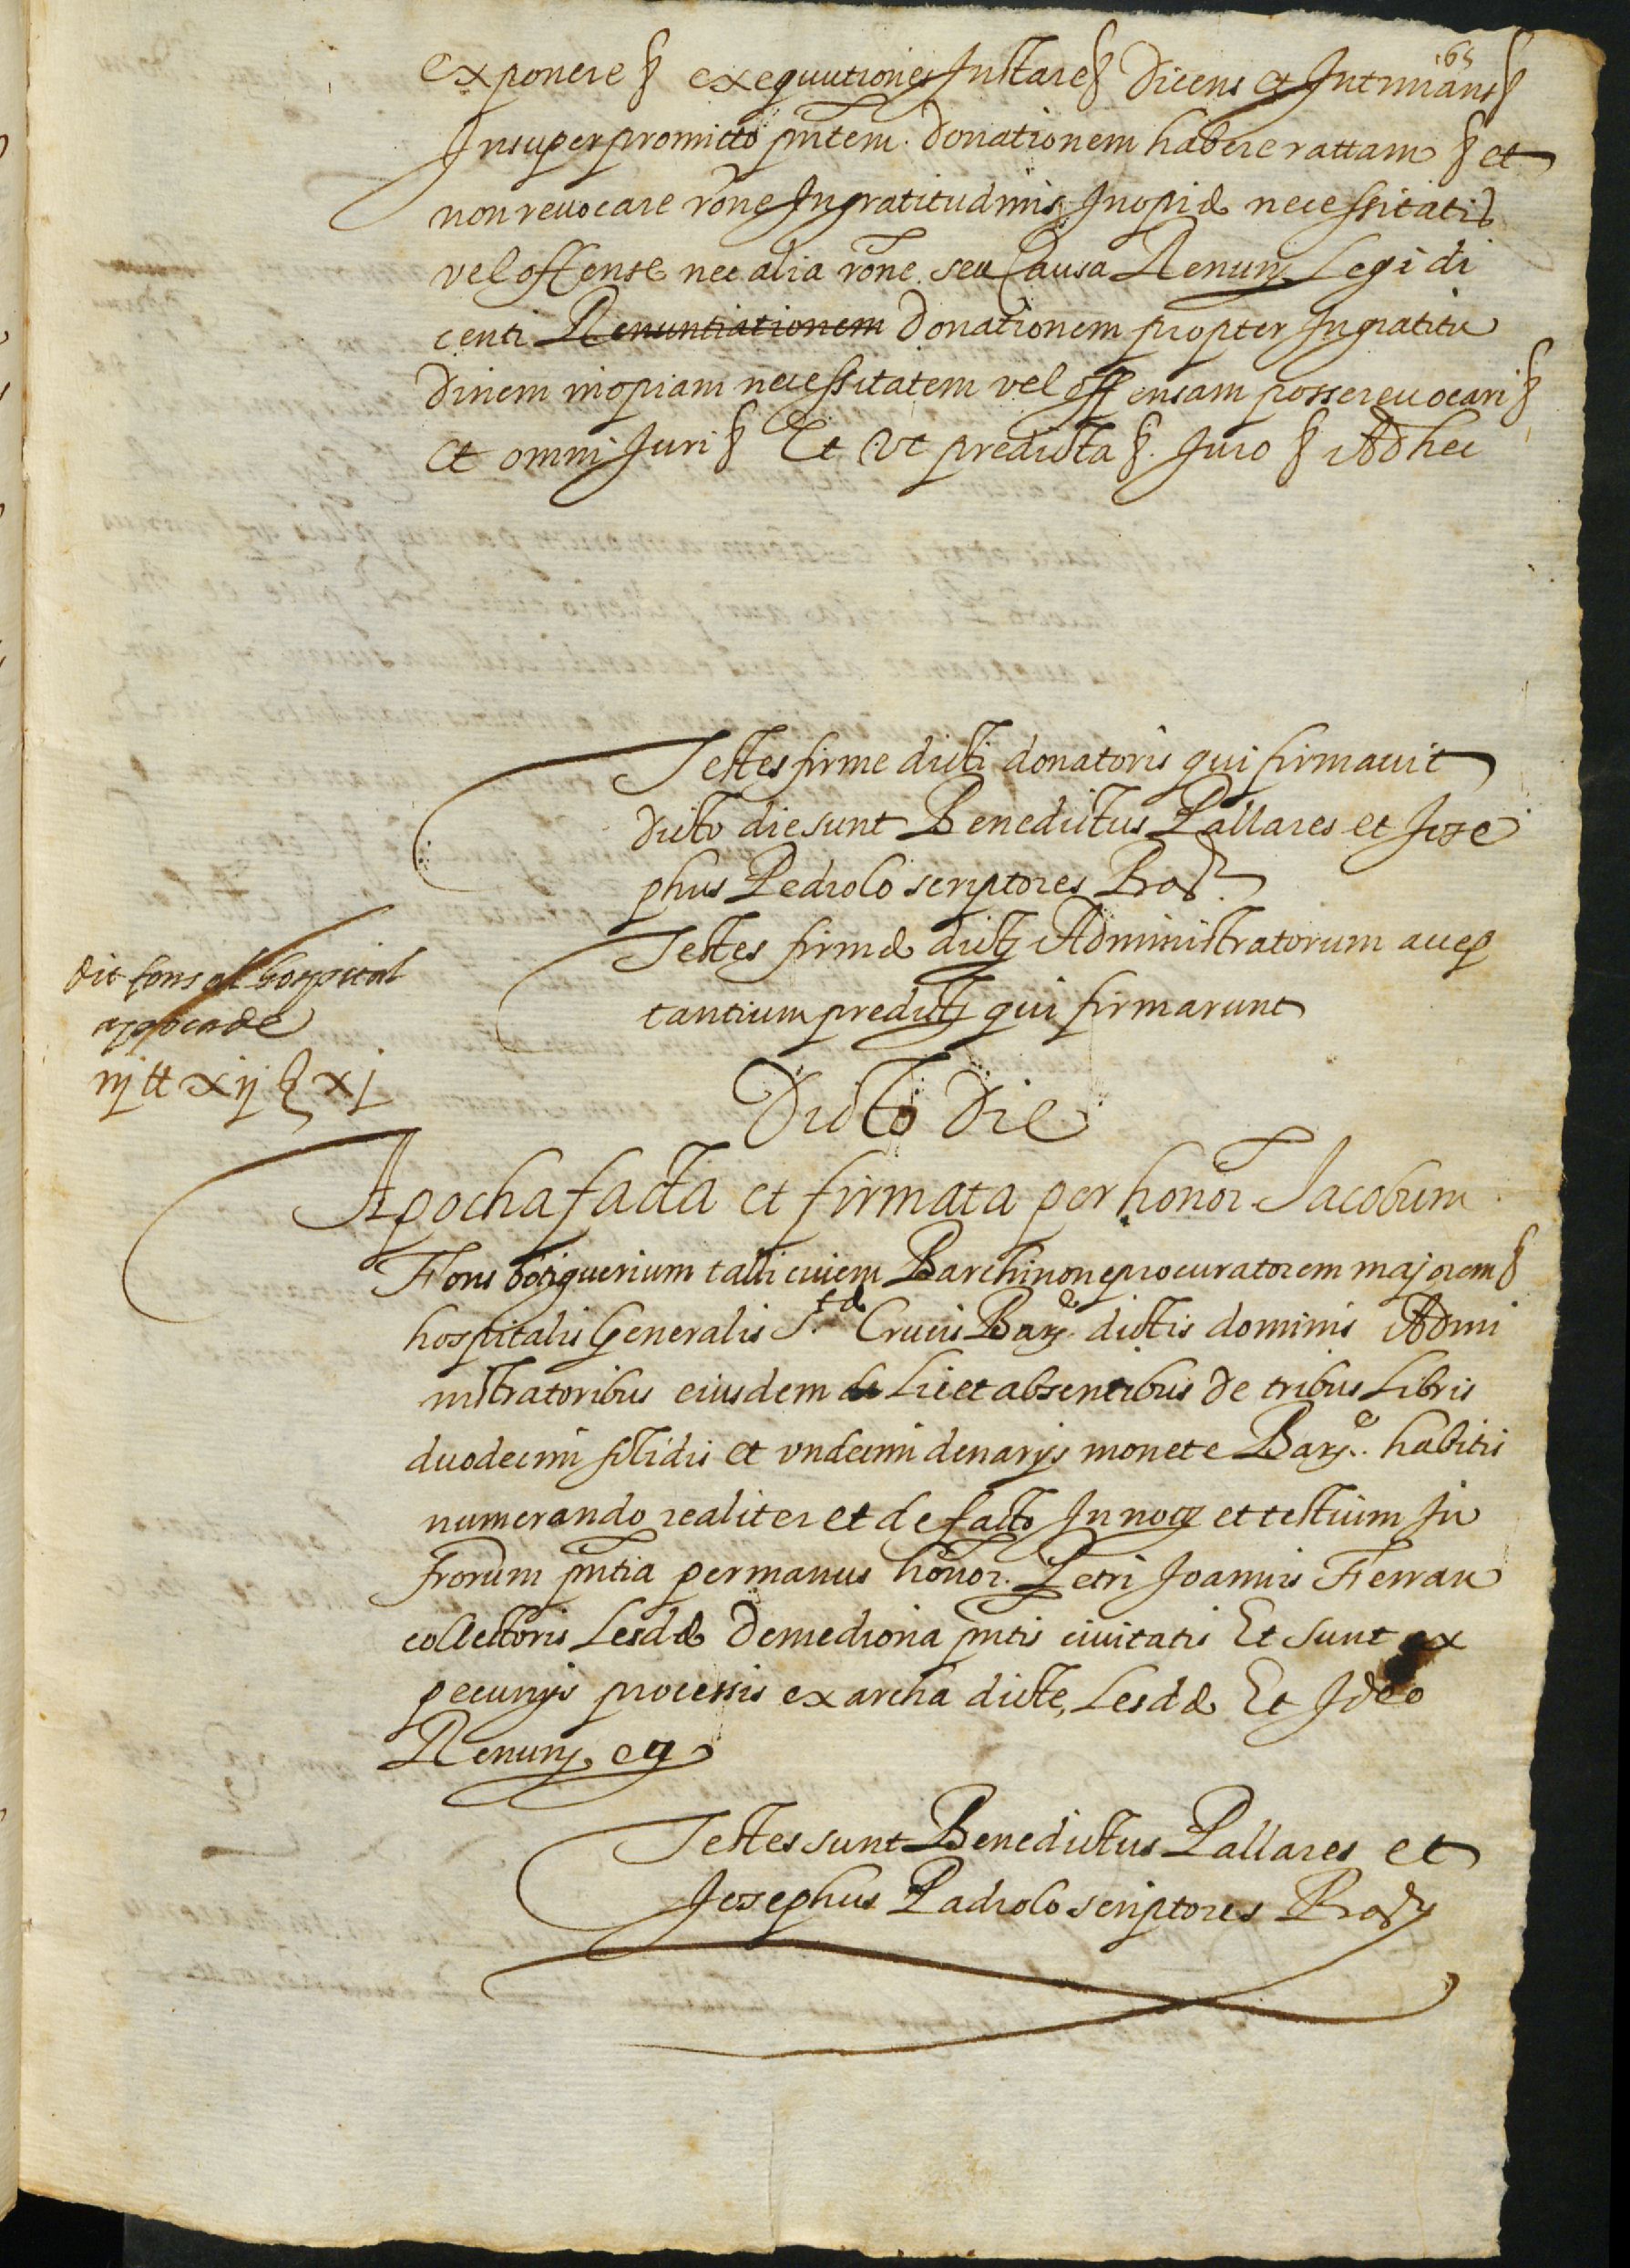 165
exponere § exequutiones Instare § Dicens et Intimans §
Insuper promitto pntem donationem habere rattam § et
non revocare rone Ingratitudinis Inopiæ necessitatis
vel offense nec alia rone seu Causa Renun Legi di
centi Renuntiationem donationem propter Ingratitu
dinem inopiam necessitatem vel offensam posse revocari §
et omni Juri § Et Ut predicta § Juro § Ad hec
Testes firme dicti donatoris qui firmavit
dicto die sunt Benedictus Pallares et Jose
phus Pedrolo scriptores Bar
Testes firmæ dict Administratorum accep
tantium predict qui firmarunt
Dicto Die
dit fons al hospital
appocade
iij tt xij § xj
Apocha facta et firmata per honor Jacobum
Fons botiguerium talli civem Barchinone procuratorem majorem §
hospitalis Generalis S.tæ Crucis Barne dictis dominis Admi
nistratoribus eiusdem de Licet absentibus de tribus Libris
duodecim solidis et undecim denarijs monete Barne habitis
numerando realiter et de facto In noty et testium In
frorum pntia per manus honor. Petri Joannis Ferran
collectoris Lesdæ de mediona pntis civitatis Et sunt ex
pecunijs processis ex archa dicte Lesdæ Et Ideo
Renun eq
Testes sunt Benedictus Pallares et
Josephus Padrolo scriptores Bar